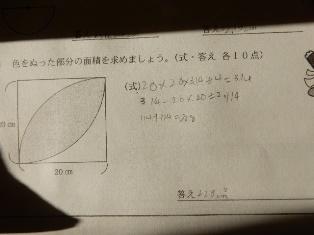 色をぬった部分の面積を求めましょう。(式・答え 各10点)
(式)20×20×3.14÷4=314
314-20×20÷2=114
114+114=228
20 cm
20 cm
答え 228cm²